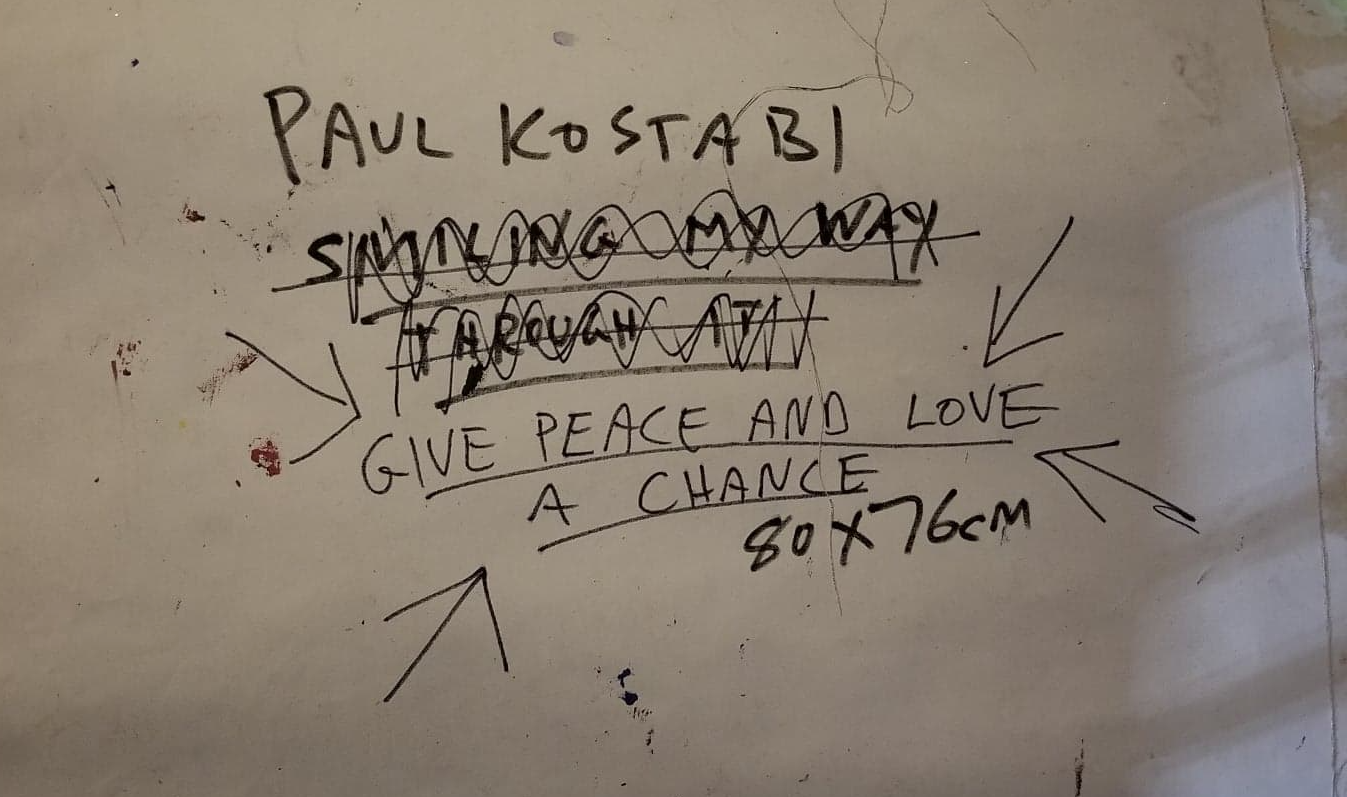 PAUL KOSTABI
SMILING MY WAY
THROUGH IT
GIVE PEACE AND LOVE
A CHANCE
80X76cM